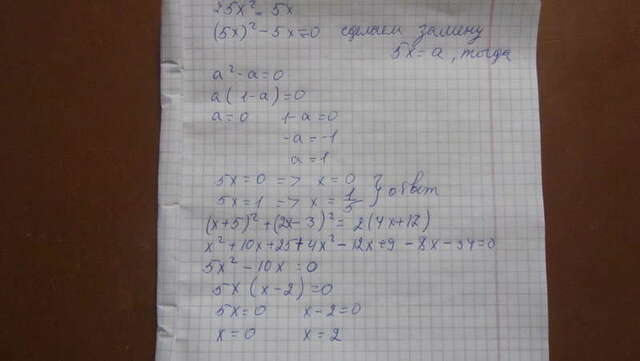 25x² = 5x
(5x)² - 5x = 0 сделаем замену
5x = a, тогда
a² - a = 0
a(1-a) = 0
a = 0 1-a = 0
-a = -1
a = 1
5x = 0 => x = 0
5x = 1 => x = 1/5 } ответ
(x+5)² + (2x-3)² = 2(4x+17)
x² + 10x + 25 + 4x² - 12x + 9 - 8x - 34 = 0
5x² - 10x = 0
5x(x-2) = 0
5x = 0 x-2 = 0
x = 0 x = 2